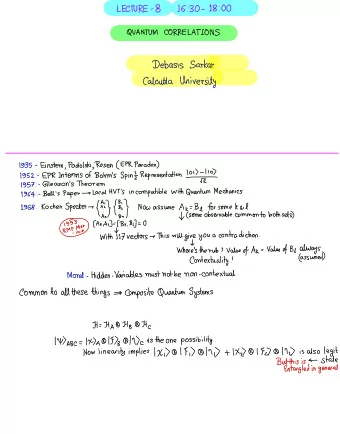 LECTURE-8 16:30-18:00
QUANTUM CORRELATIONS
Debasis Sarkar
Calcutta University
1935 - Einstein, Podolski, Rosen (EPR Paradox)
1952 - EPR Interms of Bohm's Spin ½ Representation |01⟩-|10⟩ / √2
1957 - Gleason's Theorem
1964 - Bell's Paper → Local HVT's incompatible with Quantum Mechanics
1968 - Kochen Specker → Now assume A_k = B_l for some k & l
(same observable common to both sets)
1993
[A_i, A_j] = [B_i, B_j] = 0
With 117 vectors → This will give you a contradiction
Where's the rub? Value of A_k = Value of B_l always
Contextuality! (assumed)
Moral - Hidden-Variables must not be non-contextual
Common to all these things ⇒ Composite Quantum Systems
H = H_A ⊗ H_B ⊗ H_C
|Ψ⟩_ABC = |χ⟩_A ⊗ |ξ⟩_B ⊗ |η⟩_C is the one possibility
Now linearity implies |χ₁⟩ ⊗ |ξ₁⟩ ⊗ |η₁⟩ + |χ₂⟩ ⊗ |ξ₂⟩ ⊗ |η₂⟩ is also legit
But this is ← state
Entangled in general